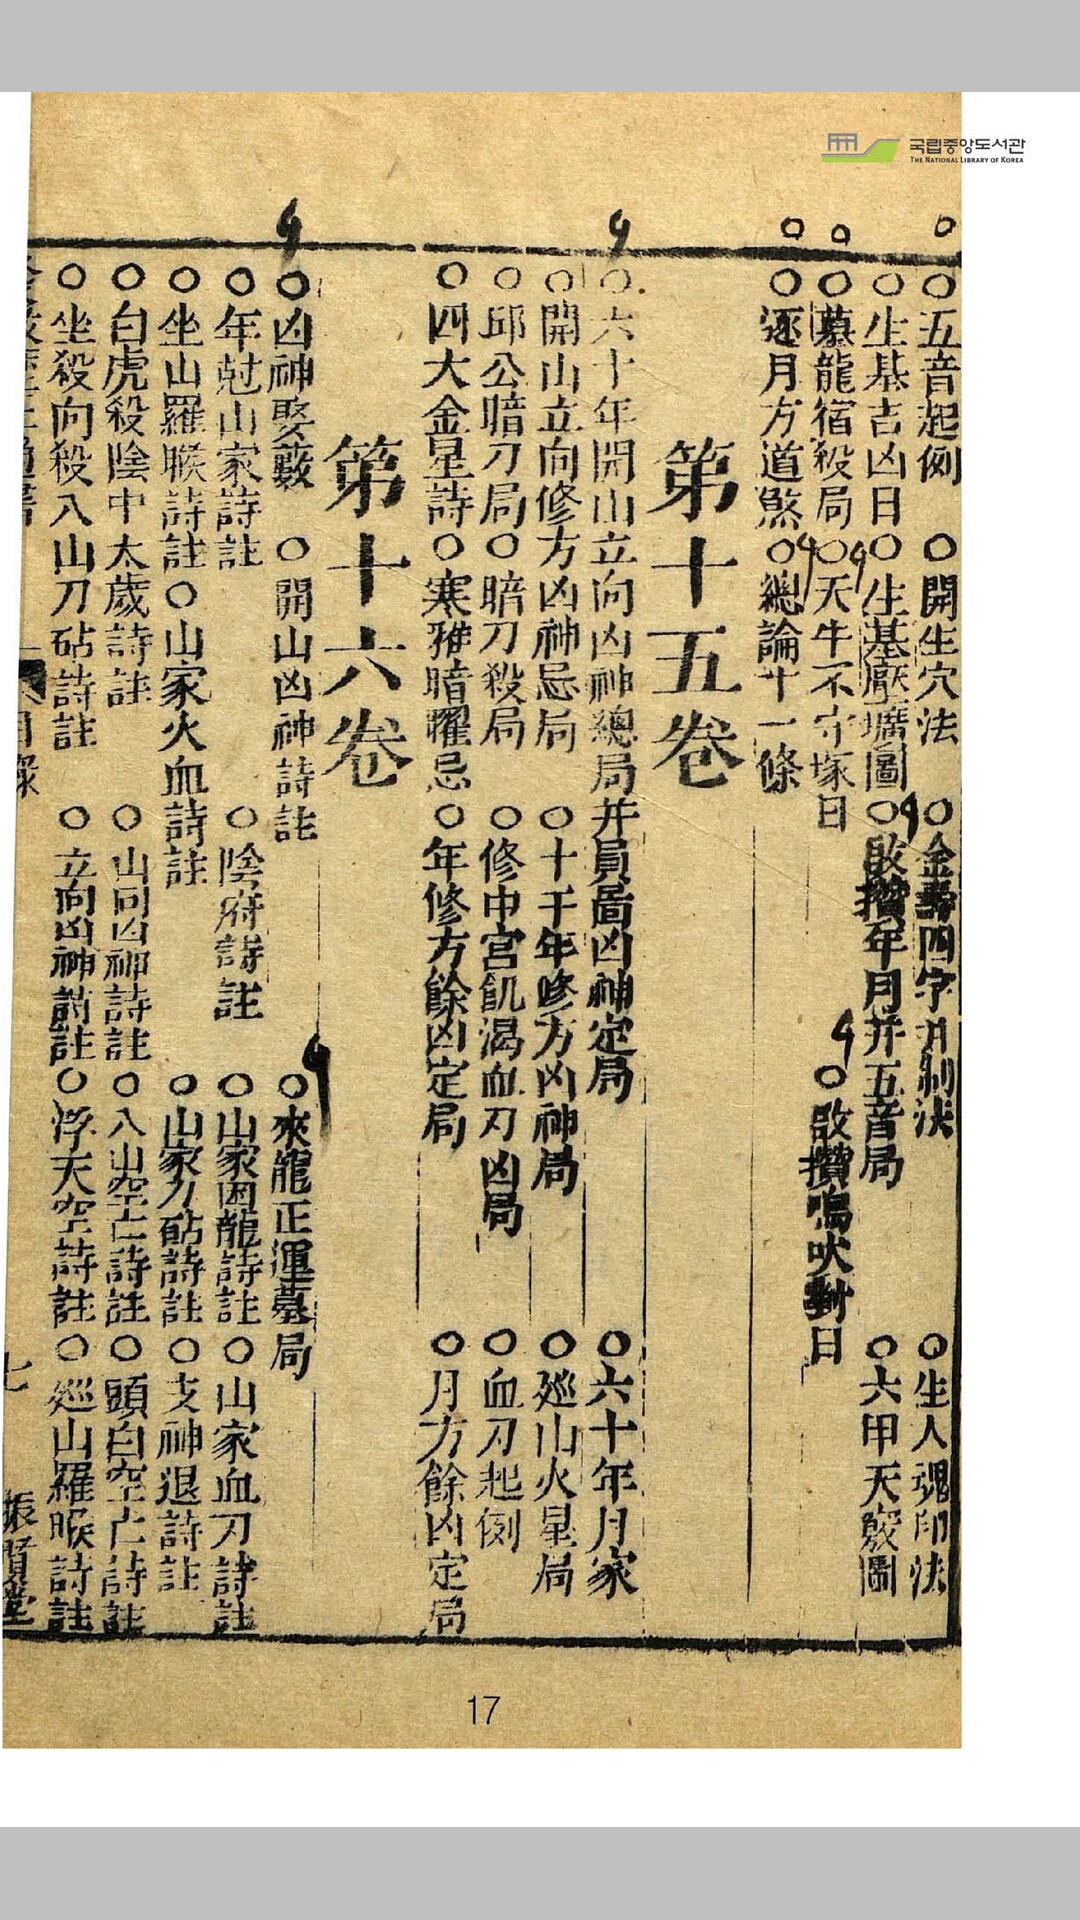 국립중앙도서관
THE NATIONAL LIBRARY OF KOREA
○五音起例 ○開生穴法 ○金壽四字 ○生人魂印法
○生基吉凶日 ○生基壓壙圖 ○啟攢年月并五音局 ○六甲天竅圖
○墓龍宿殺局 ○天牛不守塚日 ○啟攢鳴吠對日
○逐月方道煞 ○總論十一條
第十五卷
○六十年開山立向凶神總局并員啚凶神定局 ○六十年月家
○開山立向修方凶神忌局 ○十干年修方凶神局 ○廵山火星局
○邱公暗刀局 ○暗刀殺局 ○修中宮飢渴血刃凶局 ○血刀起例
○四大金星詩 ○寒鴉暗曜忌 ○年修方餘凶定局 ○月方餘凶定局
第十六卷
○凶神娶藪 ○開山凶神詩註 ○來龍正運墓局
○年尅山家詩註 ○陰府詩註 ○山家困龍詩註 ○山家血刀詩註
○坐山羅睺詩註 ○山家火血詩註 ○山家刀砧詩註 ○支神退詩註
○白虎殺陰中太歲詩註 ○山向凶神詩註 ○八山空亡詩註 ○頭白空亡詩註
○坐殺向殺八山刀砧詩註 ○立向凶神詩註 ○浮天空詩註 ○廵山羅睺詩註
目錄 七 振賢堂
17